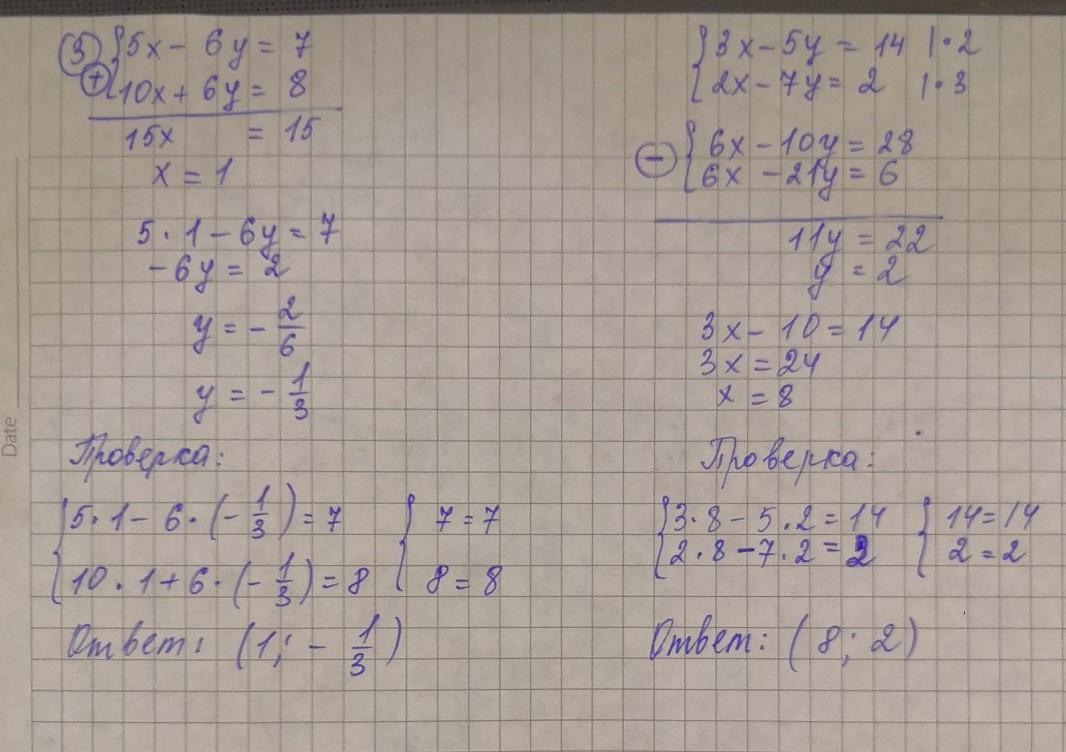 ③ { 5x - 6y = 7
⊕ { 10x + 6y = 8
15x = 15
x = 1
5 · 1 - 6y = 7
-6y = 2
y = - 2/6
y = - 1/3
Проверка:
{ 5 · 1 - 6 · (- 1/3) = 7 { 7 = 7
{ 10 · 1 + 6 · (- 1/3) = 8 { 8 = 8
Ответ: (1; - 1/3)
{ 3x - 5y = 14 | · 2
{ 2x - 7y = 2 | · 3
⊖ { 6x - 10y = 28
{ 6x - 21y = 6
11y = 22
y = 2
3x - 10 = 14
3x = 24
x = 8
Проверка:
{ 3 · 8 - 5 · 2 = 14 { 14 = 14
{ 2 · 8 - 7 · 2 = 2 { 2 = 2
Ответ: (8; 2)
Date